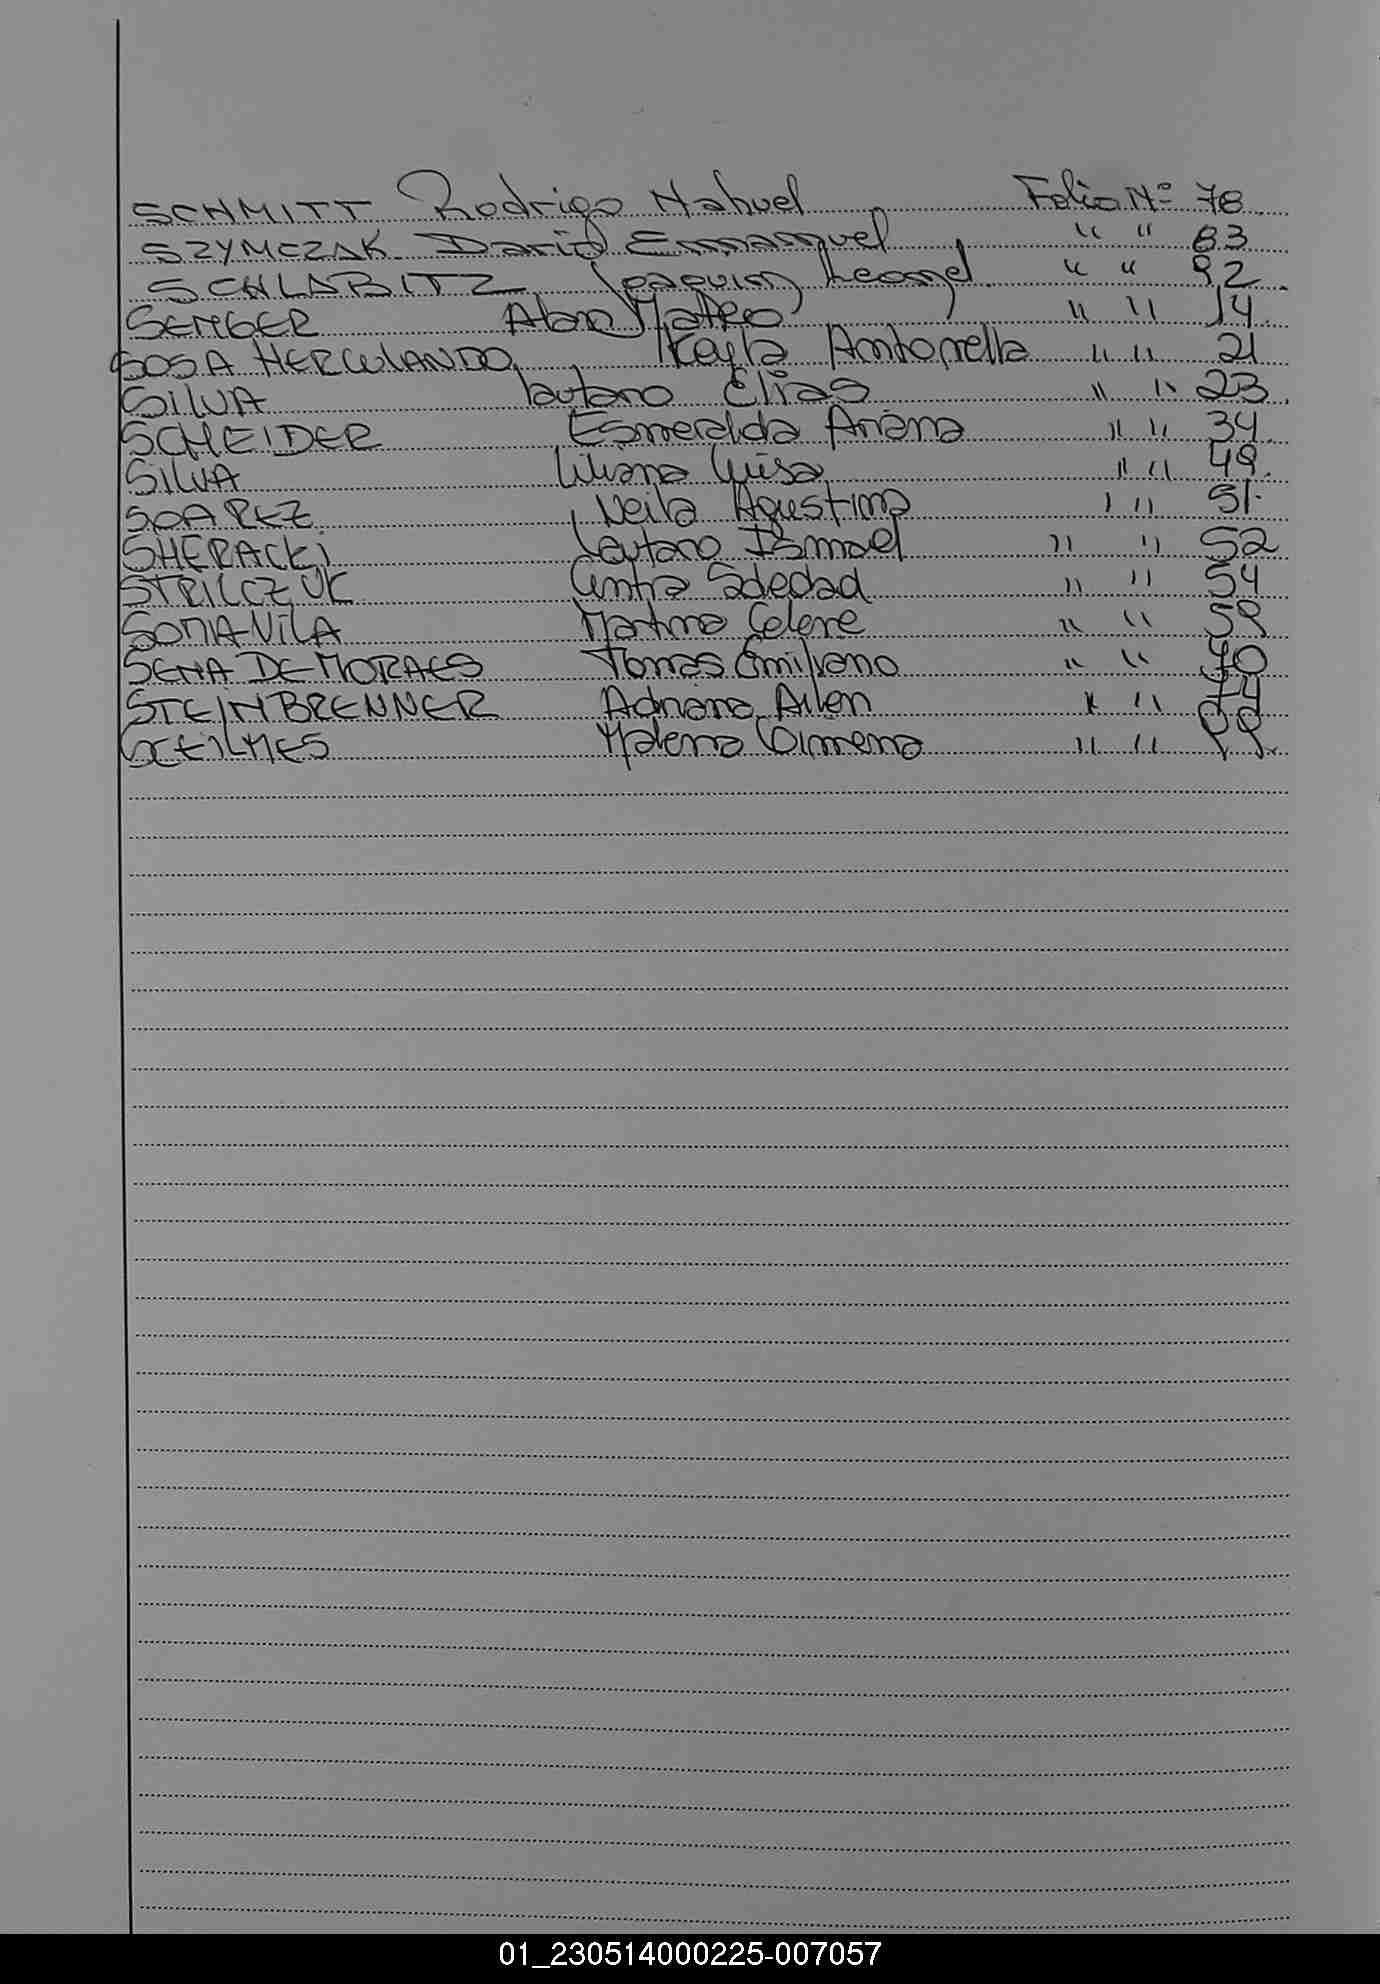 SCHMITT Rodrigo Nahuel Folio Nº 78
SZYMCZAK David Emmanuel " " 83
SCHLABITZ Joaquin Leonel " " 92
SEMGER Alan Mateo " " 14
SOSA HERCULANDO Keyla Antonella " " 21
SILVA Lautaro Elias " " 23
SCHEIDER Esmeralda Ariana " " 34
SILVA Liliana Luisa " " 49
SOAREZ Neila Agustina " " 51
SHERACKI Lautaro Ismael " " 52
STRILCZUK Cintia Soledad " " 54
SOMAVILA Martina Celene " " 59
SENA DE MORAES Tomas Emiliano " " 70
STEINBRENNER Adriana Ailen " " 74
Malena Gimena " " 99
01_230514000225-007057